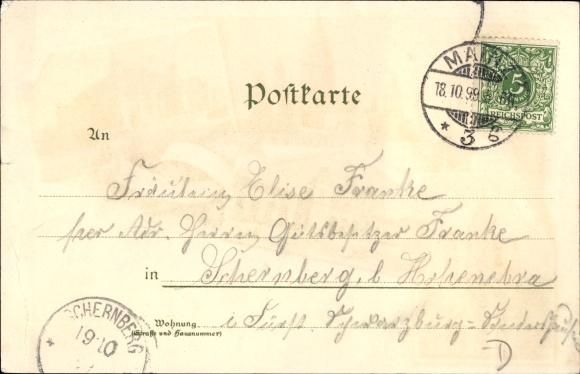 Postkarte
MAINZ
18.10.99
* 3 g
5
REICHSPOST
An
Fräulein Elise Franke
per Adr. Herrn Gutsbesitzer Franke
in Schernberg, b. Hohenebra
Wohnung
(Straße und Hausnummer)
i. Fürst. Schwarzburg-
SCHERNBERG
19.10
*